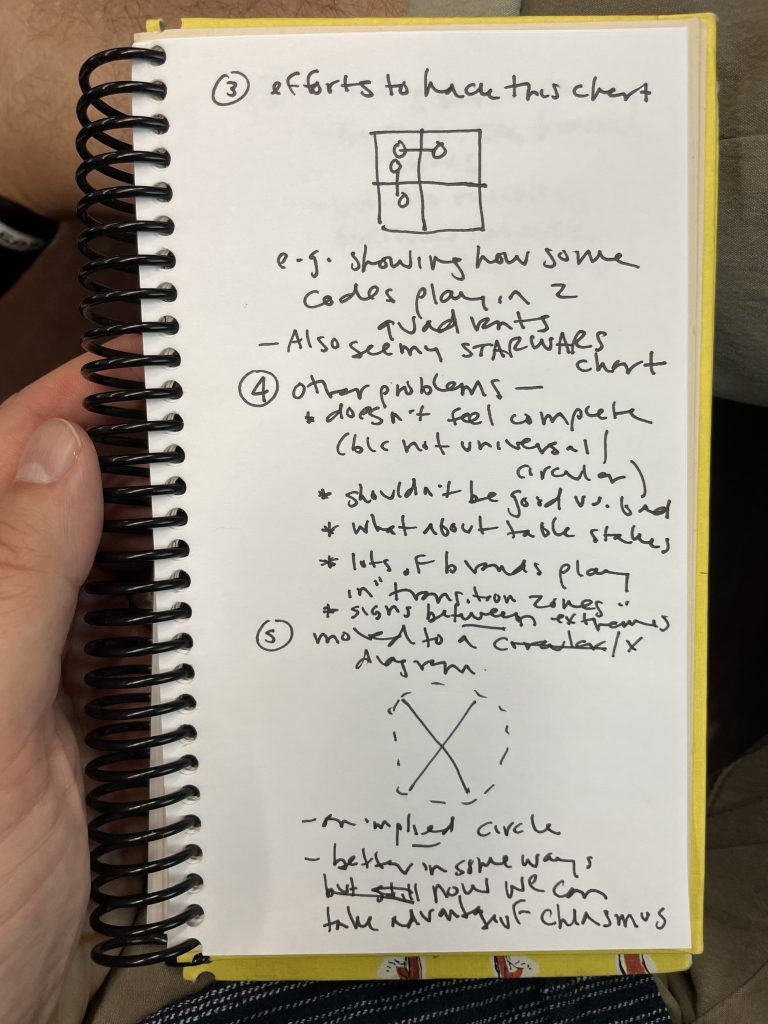 ③ efforts to hack this chart
e.g. showing how some
codes play in 2
quadrants
– Also see my STAR WARS
chart
④ other problems —
* doesn't feel complete
(b/c not universal/
circular)
* shouldn't be good vs. bad
* what about table stakes
* lots of brands play
in "transition zones"
* signs between extremes
⑤ moved to a circular/X
diagram.
– an implied circle
– better in some ways
but still now we can
take advantage of chiasmus